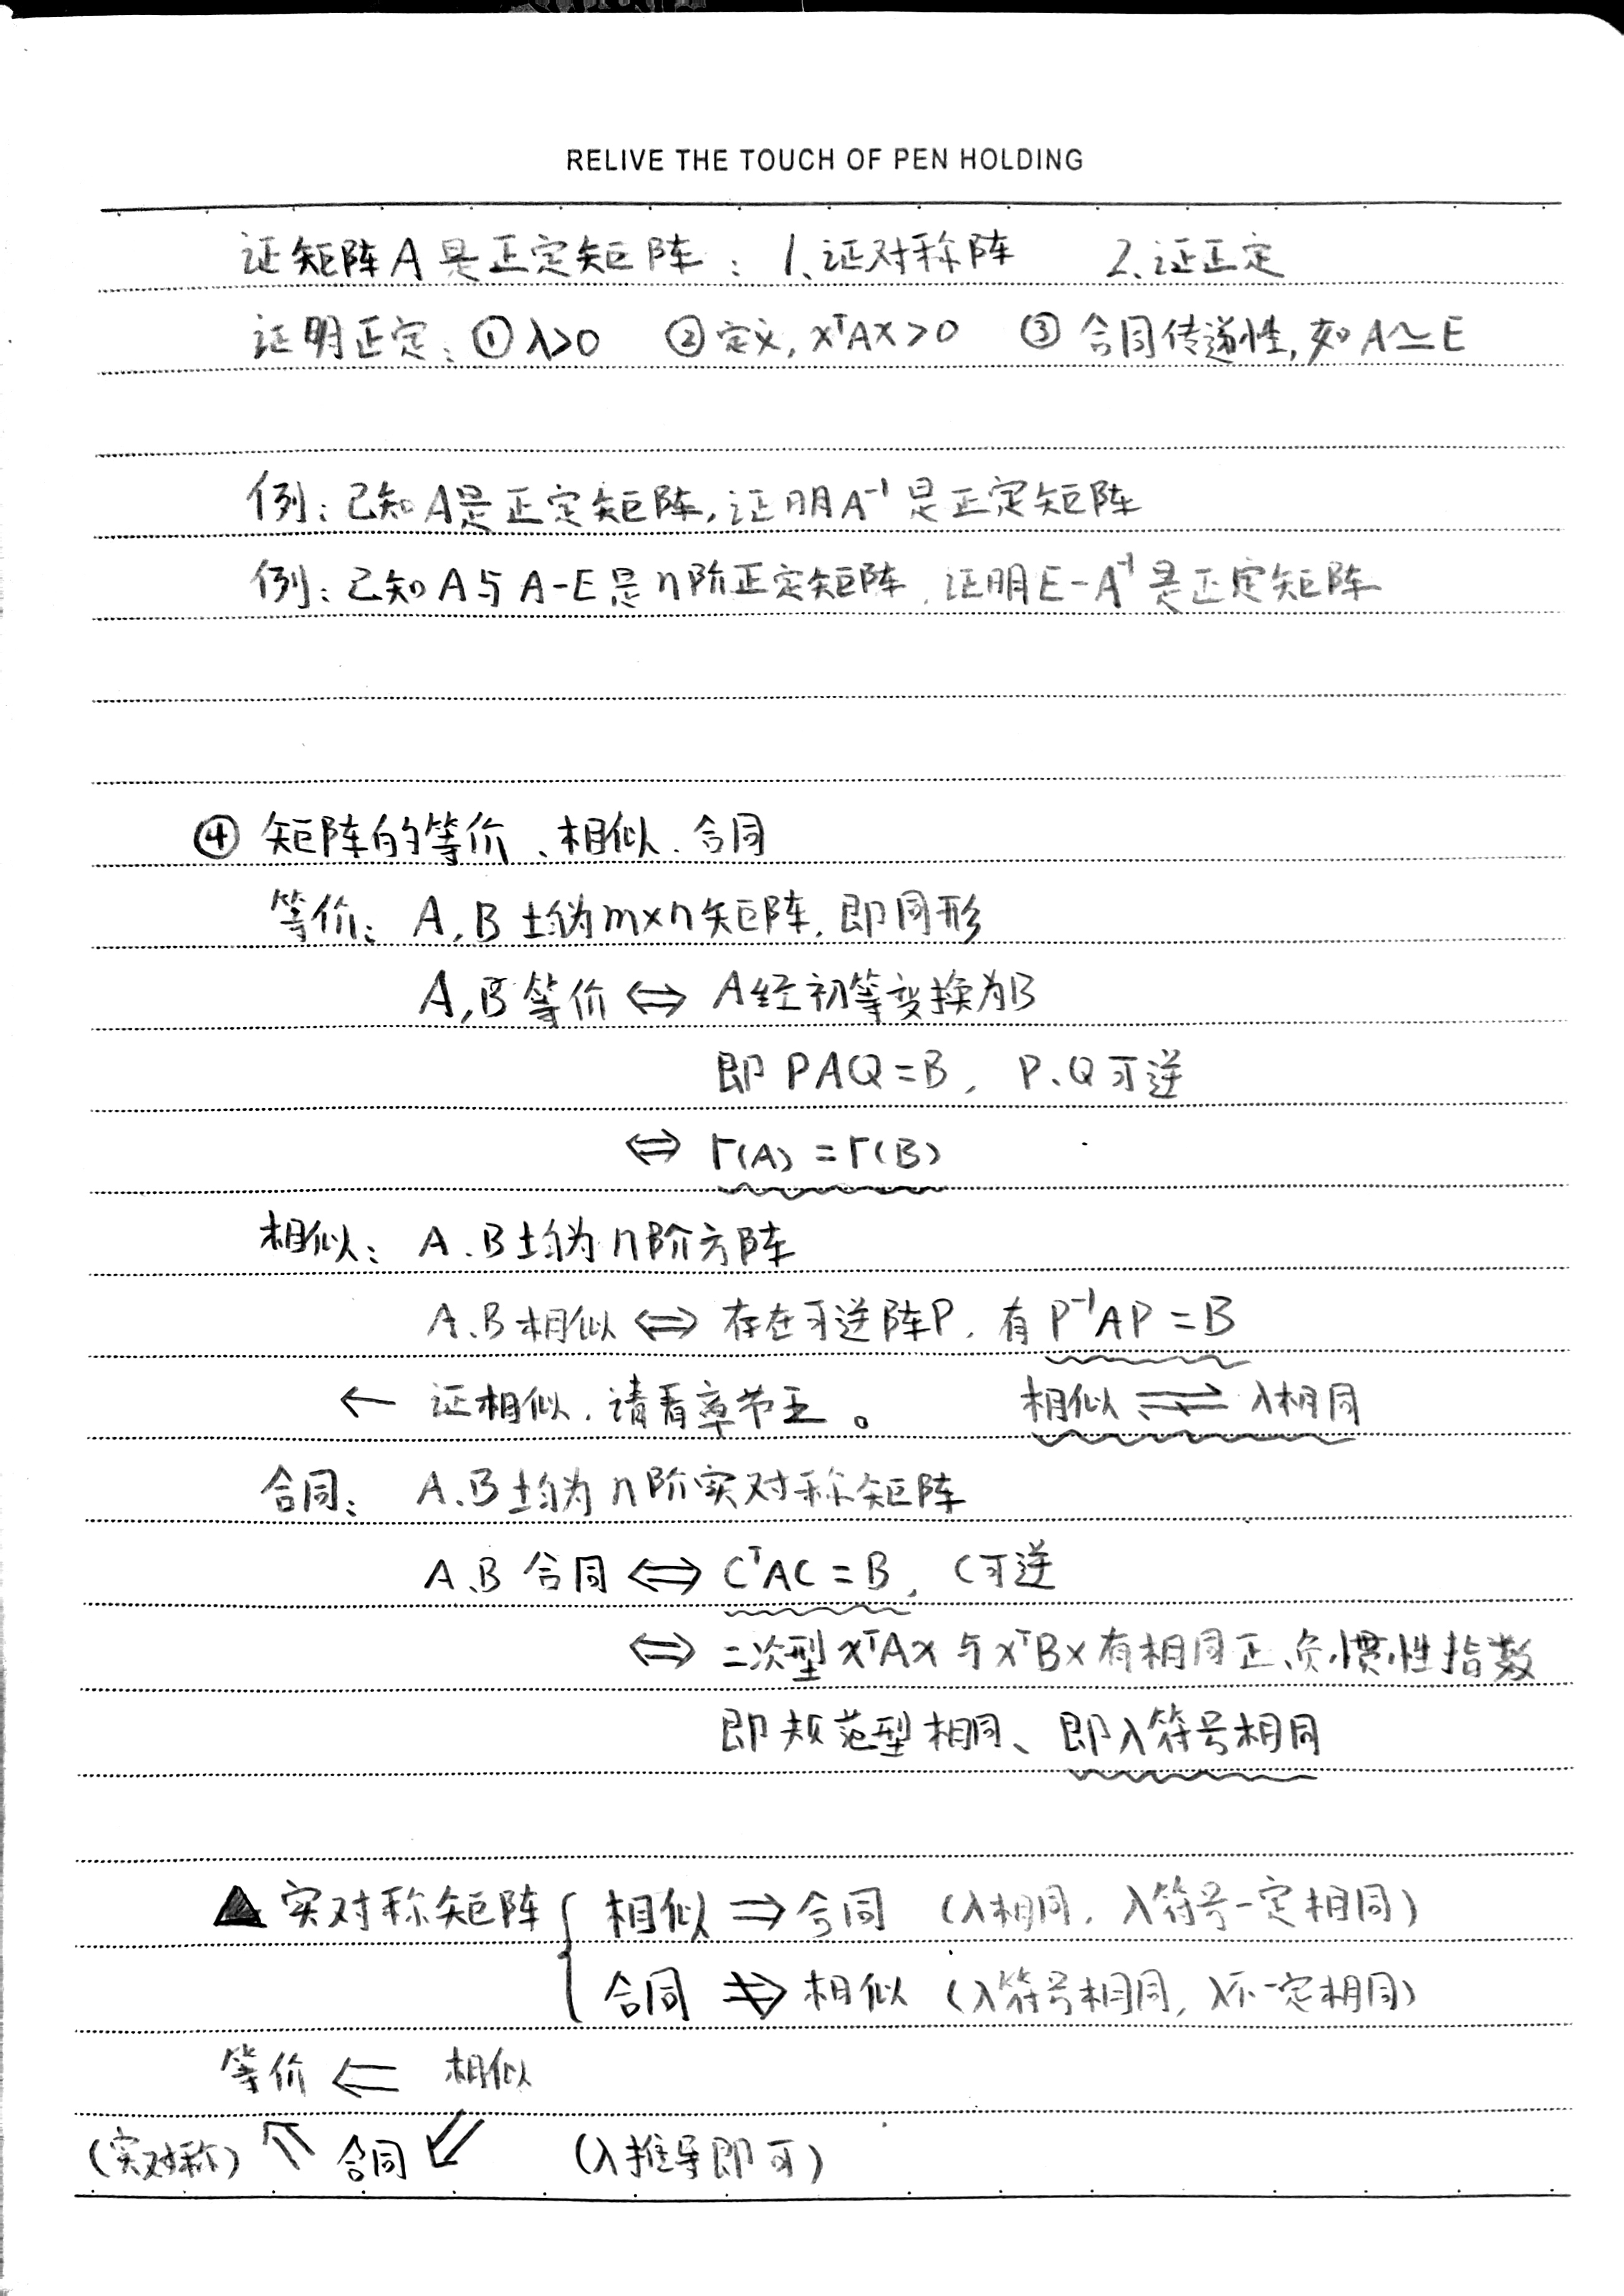 RELIVE THE TOUCH OF PEN HOLDING
证矩阵A是正定矩阵：1、证对称阵 2、证正定
证明正定：①λ>0 ②定义，xᵀAx>0 ③合同传递性，如A≃E
例：已知A是正定矩阵，证明A⁻¹是正定矩阵
例：已知A与A-E是n阶正定矩阵，证明E-A⁻¹是正定矩阵
④ 矩阵的等价、相似、合同
等价：A,B均为m×n矩阵，即同形
A,B等价⇔A经初等变换为B
即PAQ=B，P、Q可逆
⇔ r(A)=r(B)
相似：A、B均为n阶方阵
A、B相似⇔存在可逆阵P，有P⁻¹AP=B
← 证相似，请看章节五。 相似⇌̸λ相同
合同：A、B均为n阶实对称矩阵
A、B合同⇔CᵀAC=B，C可逆
⇔ 二次型xᵀAx与xᵀBx有相同正、负惯性指数
即规范型相同、即λ符号相同
▲实对称矩阵{相似⇒合同（λ相同，λ符号一定相同）
合同⇏相似（λ符号相同，λ不一定相同）
等价⇐相似
（实对称）⇖合同⇙（λ推导即可）